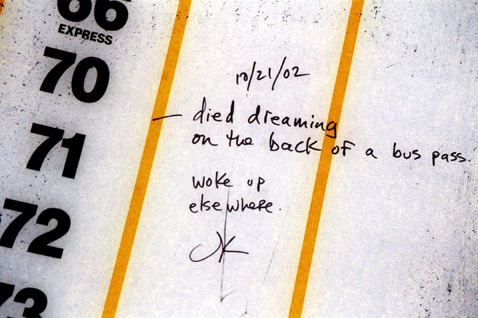 66
EXPRESS
70
71
72
73
10/21/02
– died dreaming
on the back of a bus pass.
woke up
elsewhere.
JK